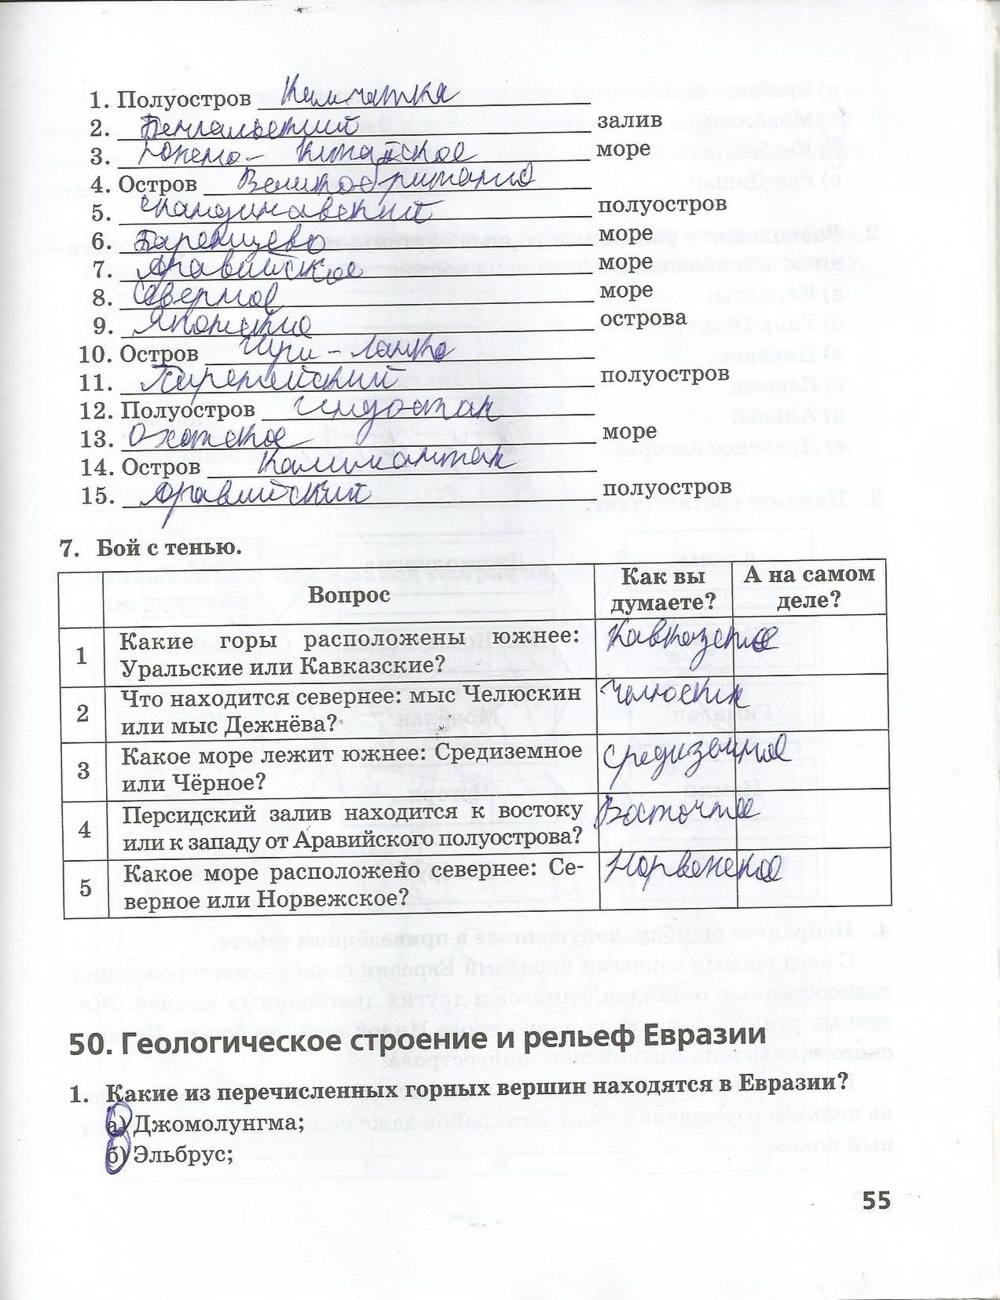 1. Полуостров Камчатка
2. Бенгальский залив
3. Южно-Китайское море
4. Остров Великобритания
5. Скандинавский полуостров
6. Баренцево море
7. Аравийское море
8. Северное море
9. Японские острова
10. Остров Шри-Ланка
11. Пиренейский полуостров
12. Полуостров Индостан
13. Охотское море
14. Остров Калимантан
15. Аравийский полуостров
7. Бой с тенью.
Вопрос Как вы думаете? А на самом деле?
1 Какие горы расположены южнее: Кавказские
Уральские или Кавказские?
2 Что находится севернее: мыс Челюскин Челюскин
или мыс Дежнёва?
3 Какое море лежит южнее: Средиземное Средиземное
или Чёрное?
4 Персидский залив находится к востоку Восточное
или к западу от Аравийского полуострова?
5 Какое море расположено севернее: Се- Норвежское
верное или Норвежское?
50. Геологическое строение и рельеф Евразии
1. Какие из перечисленных горных вершин находятся в Евразии?
а) Джомолунгма;
б) Эльбрус;
55